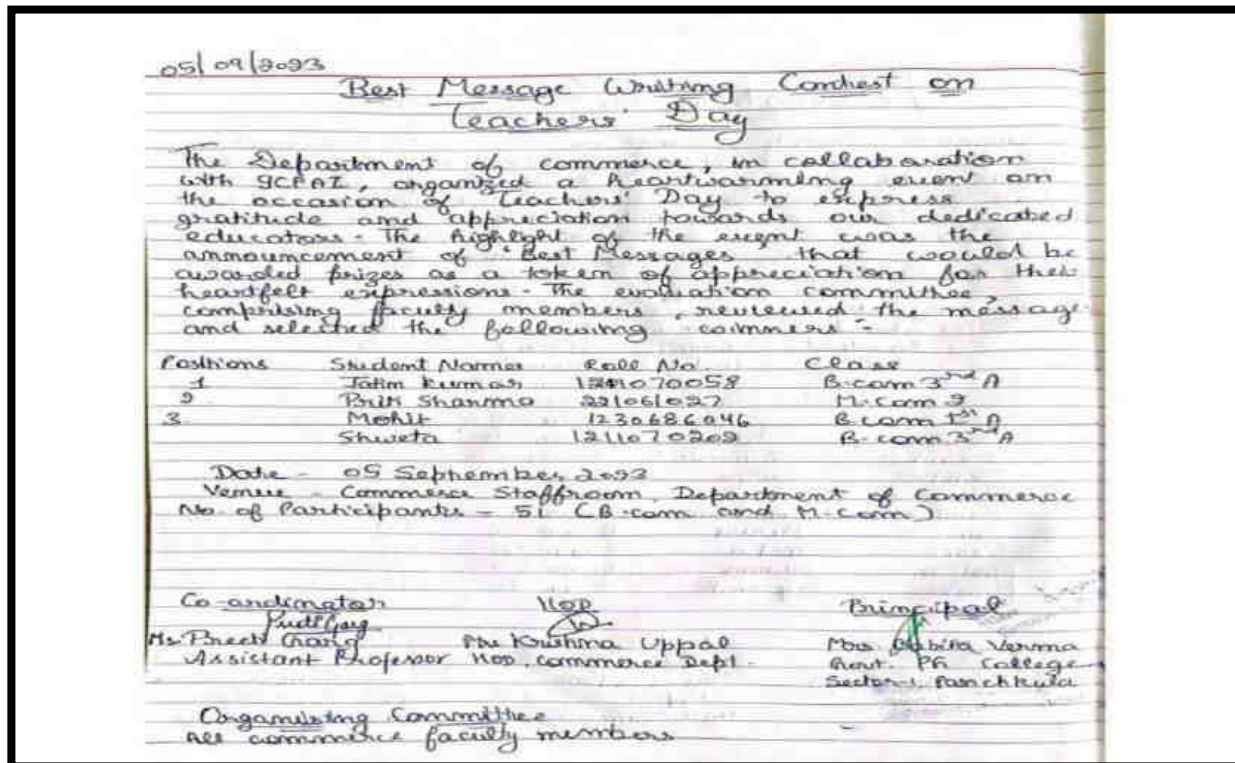 05/09/2023
Best Message Writing Contest on
Teachers' Day
The Department of commerce, in collaboration
with organized a heartwarming event on
the occasion of Teachers' Day to express
gratitude and appreciation towards our dedicated
educators - The highlight of the event was the
announcement of 'Best Messages' that would be
awarded prizes as a token of appreciation for their
heartfelt expressions - The evaluation committee,
comprising faculty members, reviewed the message
and selected the following winners :-
Positions Student Names Roll No. Class
1 Jatin Kumar B.com 3rd A
2 Priti Sharma M.com 2
3. Mohit 1230686046 B.com 1st A
Shweta 1211070202 B.com 3rd A
Date - 05 September, 2023
Venue - Commerce Staffroom, Department of Commerce
No. of Participants - 51 (B.com and M.com)
Co-ordinator HOD Principal
Assistant Professor HOD, commerce Dept. Govt. PG College
Uppal Verma
Sector-1, Panchkula
Organising Committee
All commerce faculty members